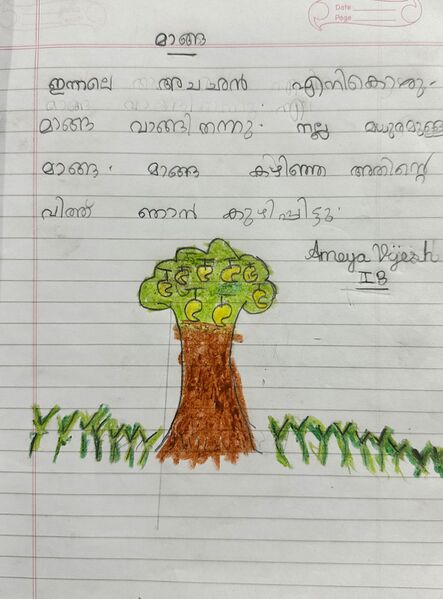 Date
Page
മാങ്ങ
ഇന്നലെ അചഛൻ എനിക്കൊരു
മാങ്ങ വാങ്ങി തന്നു. നല്ല മധുരമുള്ള
മാങ്ങ. മാങ്ങ കഴിഞ്ഞ അതിന്റെ
വിത്ത് ഞാൻ കുഴിച്ചിട്ടു.
Ameya Vijesh
II B